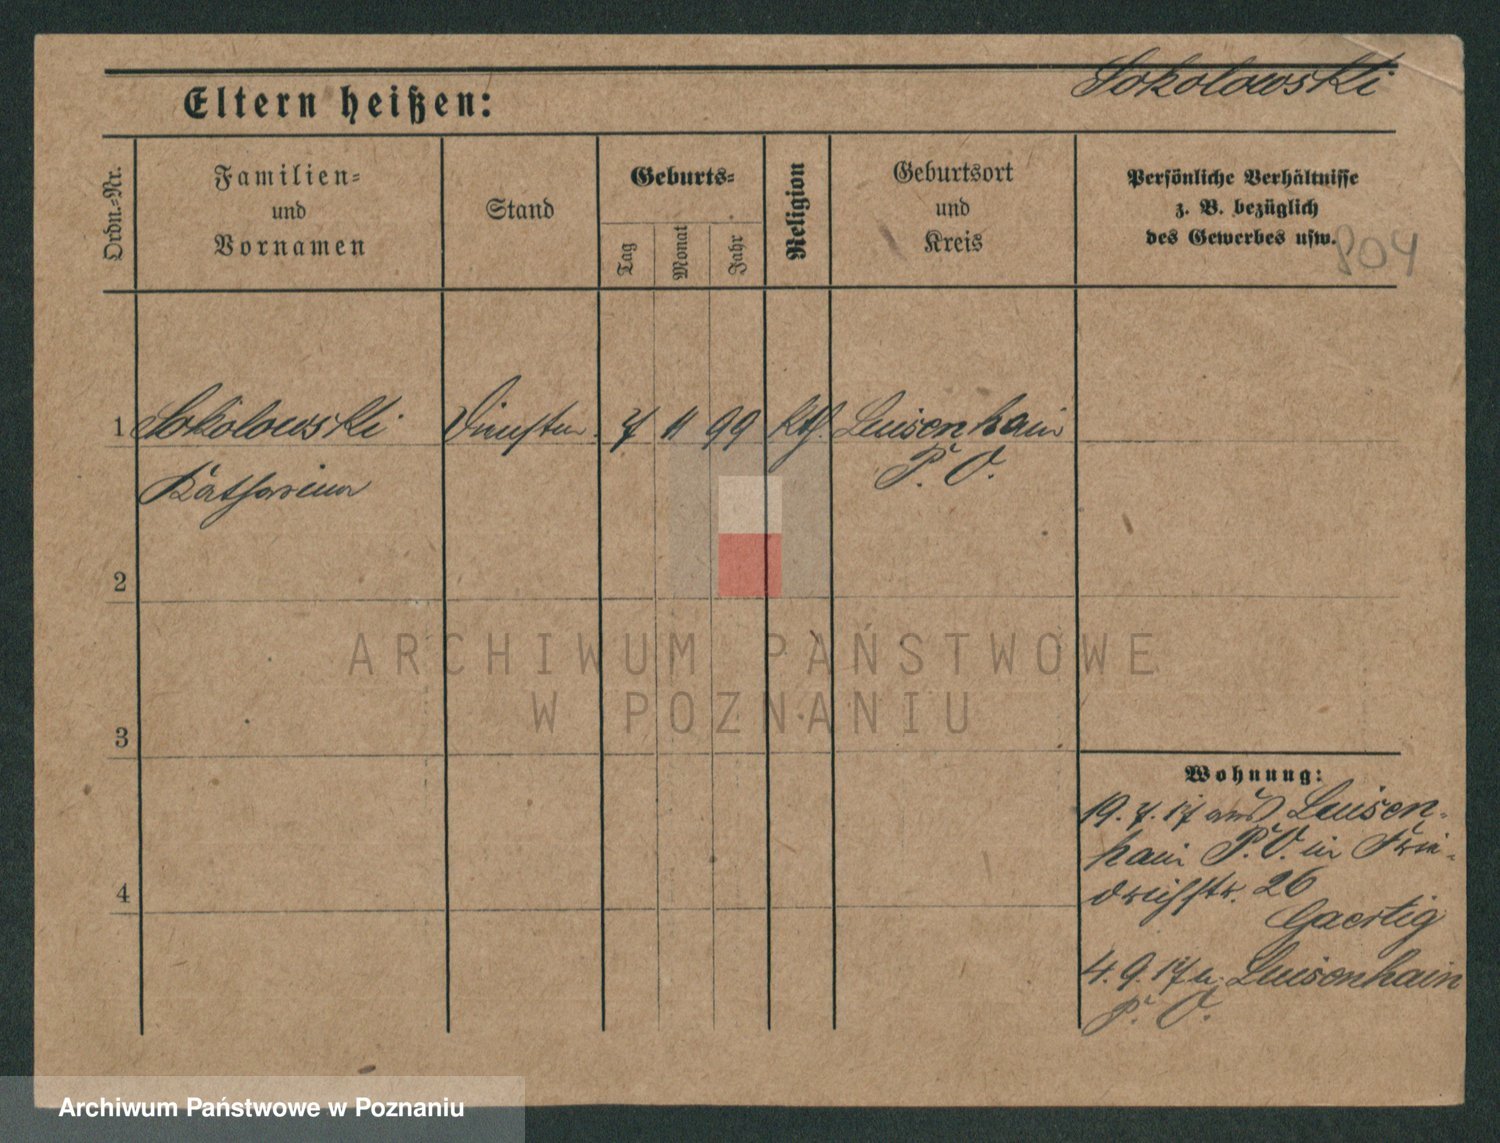 Sokolowski
Eltern heißen:
Ordn.-Nr.
Familien-
und
Vornamen
Stand
Geburts-
Tag
Monat
Jahr
Religion
Geburtsort
und
Kreis
Persönliche Verhältnisse
z. B. bezüglich
des Gewerbes usw.
804
1 Sokolowski 7 11 99 kth. Luisenhain
Katharina P. O.
2
3
4
Wohnung:
19. 7. 17 aus Luisen-
hain P. O. in Frie-
drichstr. 26
Gaertig
4. 9. 17 n. Luisenhain
P. O.
ARCHIWUM PAŃSTWOWE
W POZNANIU
Archiwum Państwowe w Poznaniu